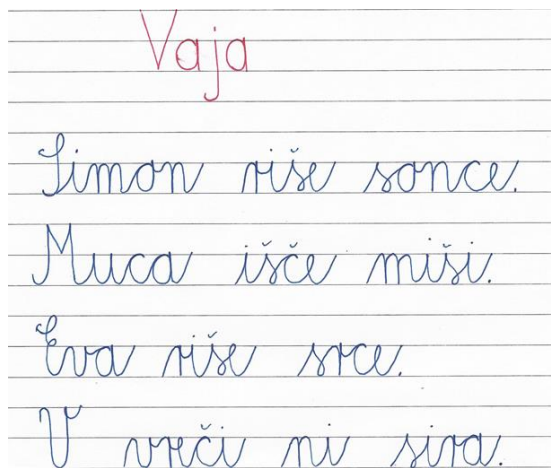 Vaja
Simon riše sonce.
Muca išče miši.
Eva riše srce.
V vreči ni sira.